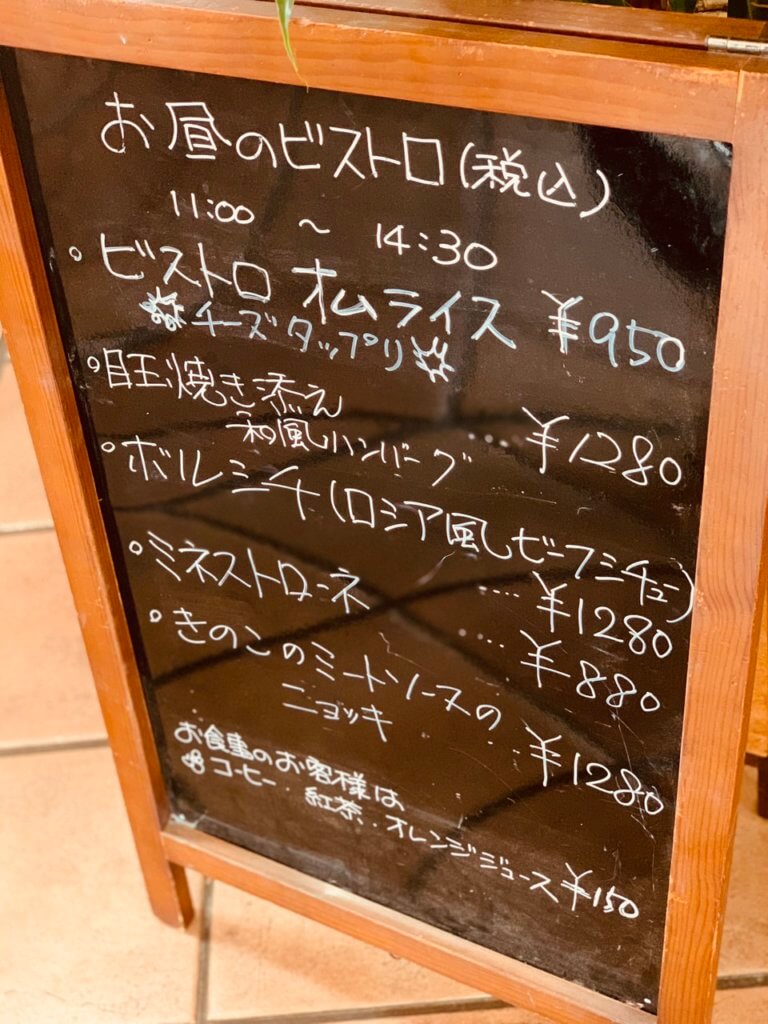 お昼のビストロ(税込)
11:00 ～ 14:30
ビストロ オムライス ¥950
チーズタップリ
目玉焼き添え
和風ハンバーグ .... ¥1280
ボルシチ(ロシア風ビーフシチュー)
.... ¥1280
ミネストローネ .... ¥880
きのこのミートソースの
ニョッキ .. ¥1280
お食事のお客様は
コーヒー．紅茶．オレンジジュース ¥150